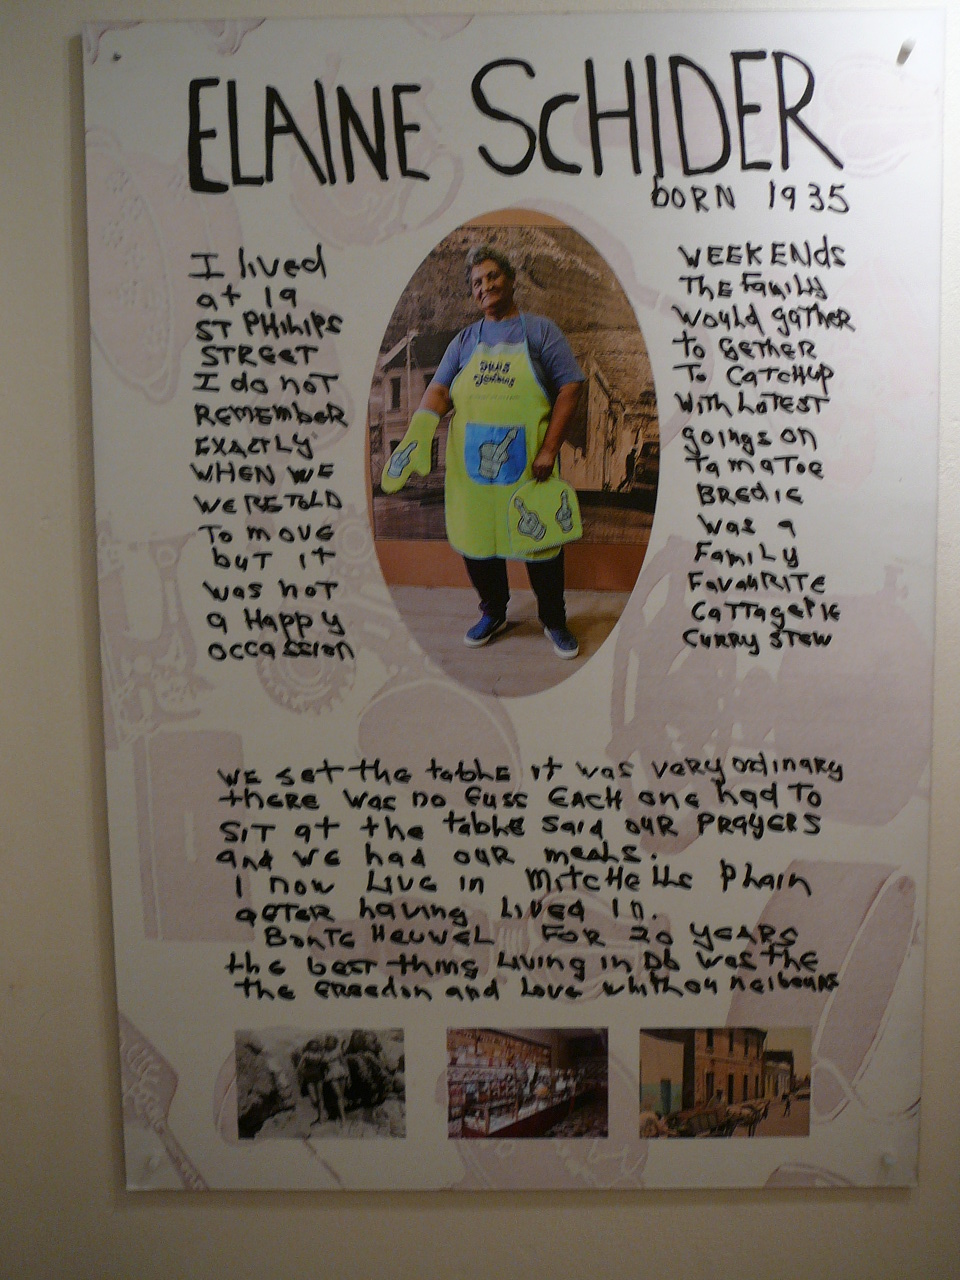 ELAINE SCHIDER
BORN 1935
I lived
at 19
ST PHILIPS
STREET
I do noT
REMEMbER
EXACTLY
WHEN WE
WERE TOLD
To move
buT iT
was noT
a Happy
occassion
WEEKENds
The Family
would gaTHER
To GETHER
To CaTCHup
WiTh LaTEST
goings on
TamaToe
BREdiE
was a
FamiLy
FavouRiTE
CoTTagePie
CuRRy STEW
WE set the table it was very ordinary
thERE was no fuss EACH one had To
SiT at the table said ouR PRayERS
and we had ouR meals.
I now LivE in MiTCHells Plain
afTER having LivEd in.
BonTE HEuvEL FOR 20 YEARS
the best thing Living in D6 was the
the freedon and LovE whith ou neibours